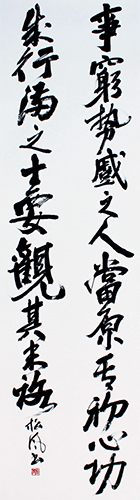 事窮勢蹙之人當原其初心功
成行滿之士要觀其末路
松風書